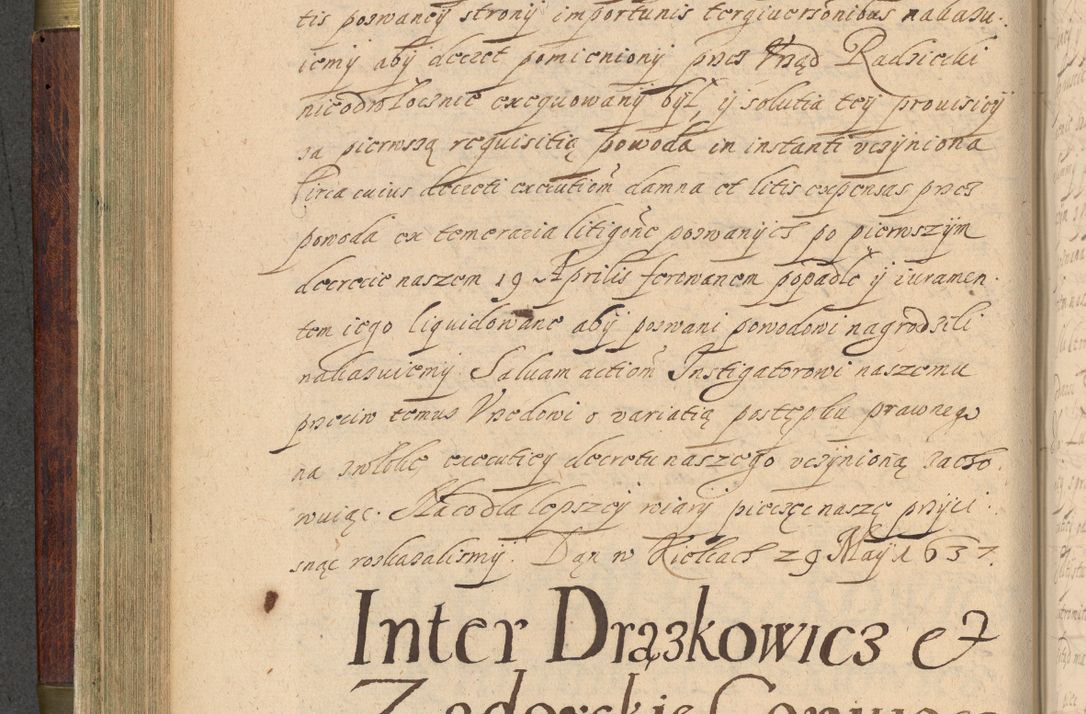 tis pozwaney strony importunis tergiuersonibus nakazu
iemy aby decret pomieniony przez Vrząd Radziecki
nieodwłocznie exequowany był, y solutia tey prouisiey
za pierwszą requisitią powoda in instanti vczyniona
Circa cuius decreti executiom damna et litis expensas przez
powoda ex temeraria litigone pozwanych po pierwszym
decrecie naszem 19 Aprilis ferowanem popadłe y iuramen
tem iego liquidowane aby pozwani powodowi nagrodzili
nakazuiemy. Saluam action Instigatorowi naszemu
przeciw temuz Vrzedowi o variatią postępku prawnego
na zwłokę executiey decretu naszego vczynioną zacho
wuiąc. Na co dla lepszey wiary pieczęc naszę przyci
snąc roskazalismy. Dan w Kielcach 29 May 1637.
Inter Drązkowicz et
Zadorskie Coniuges